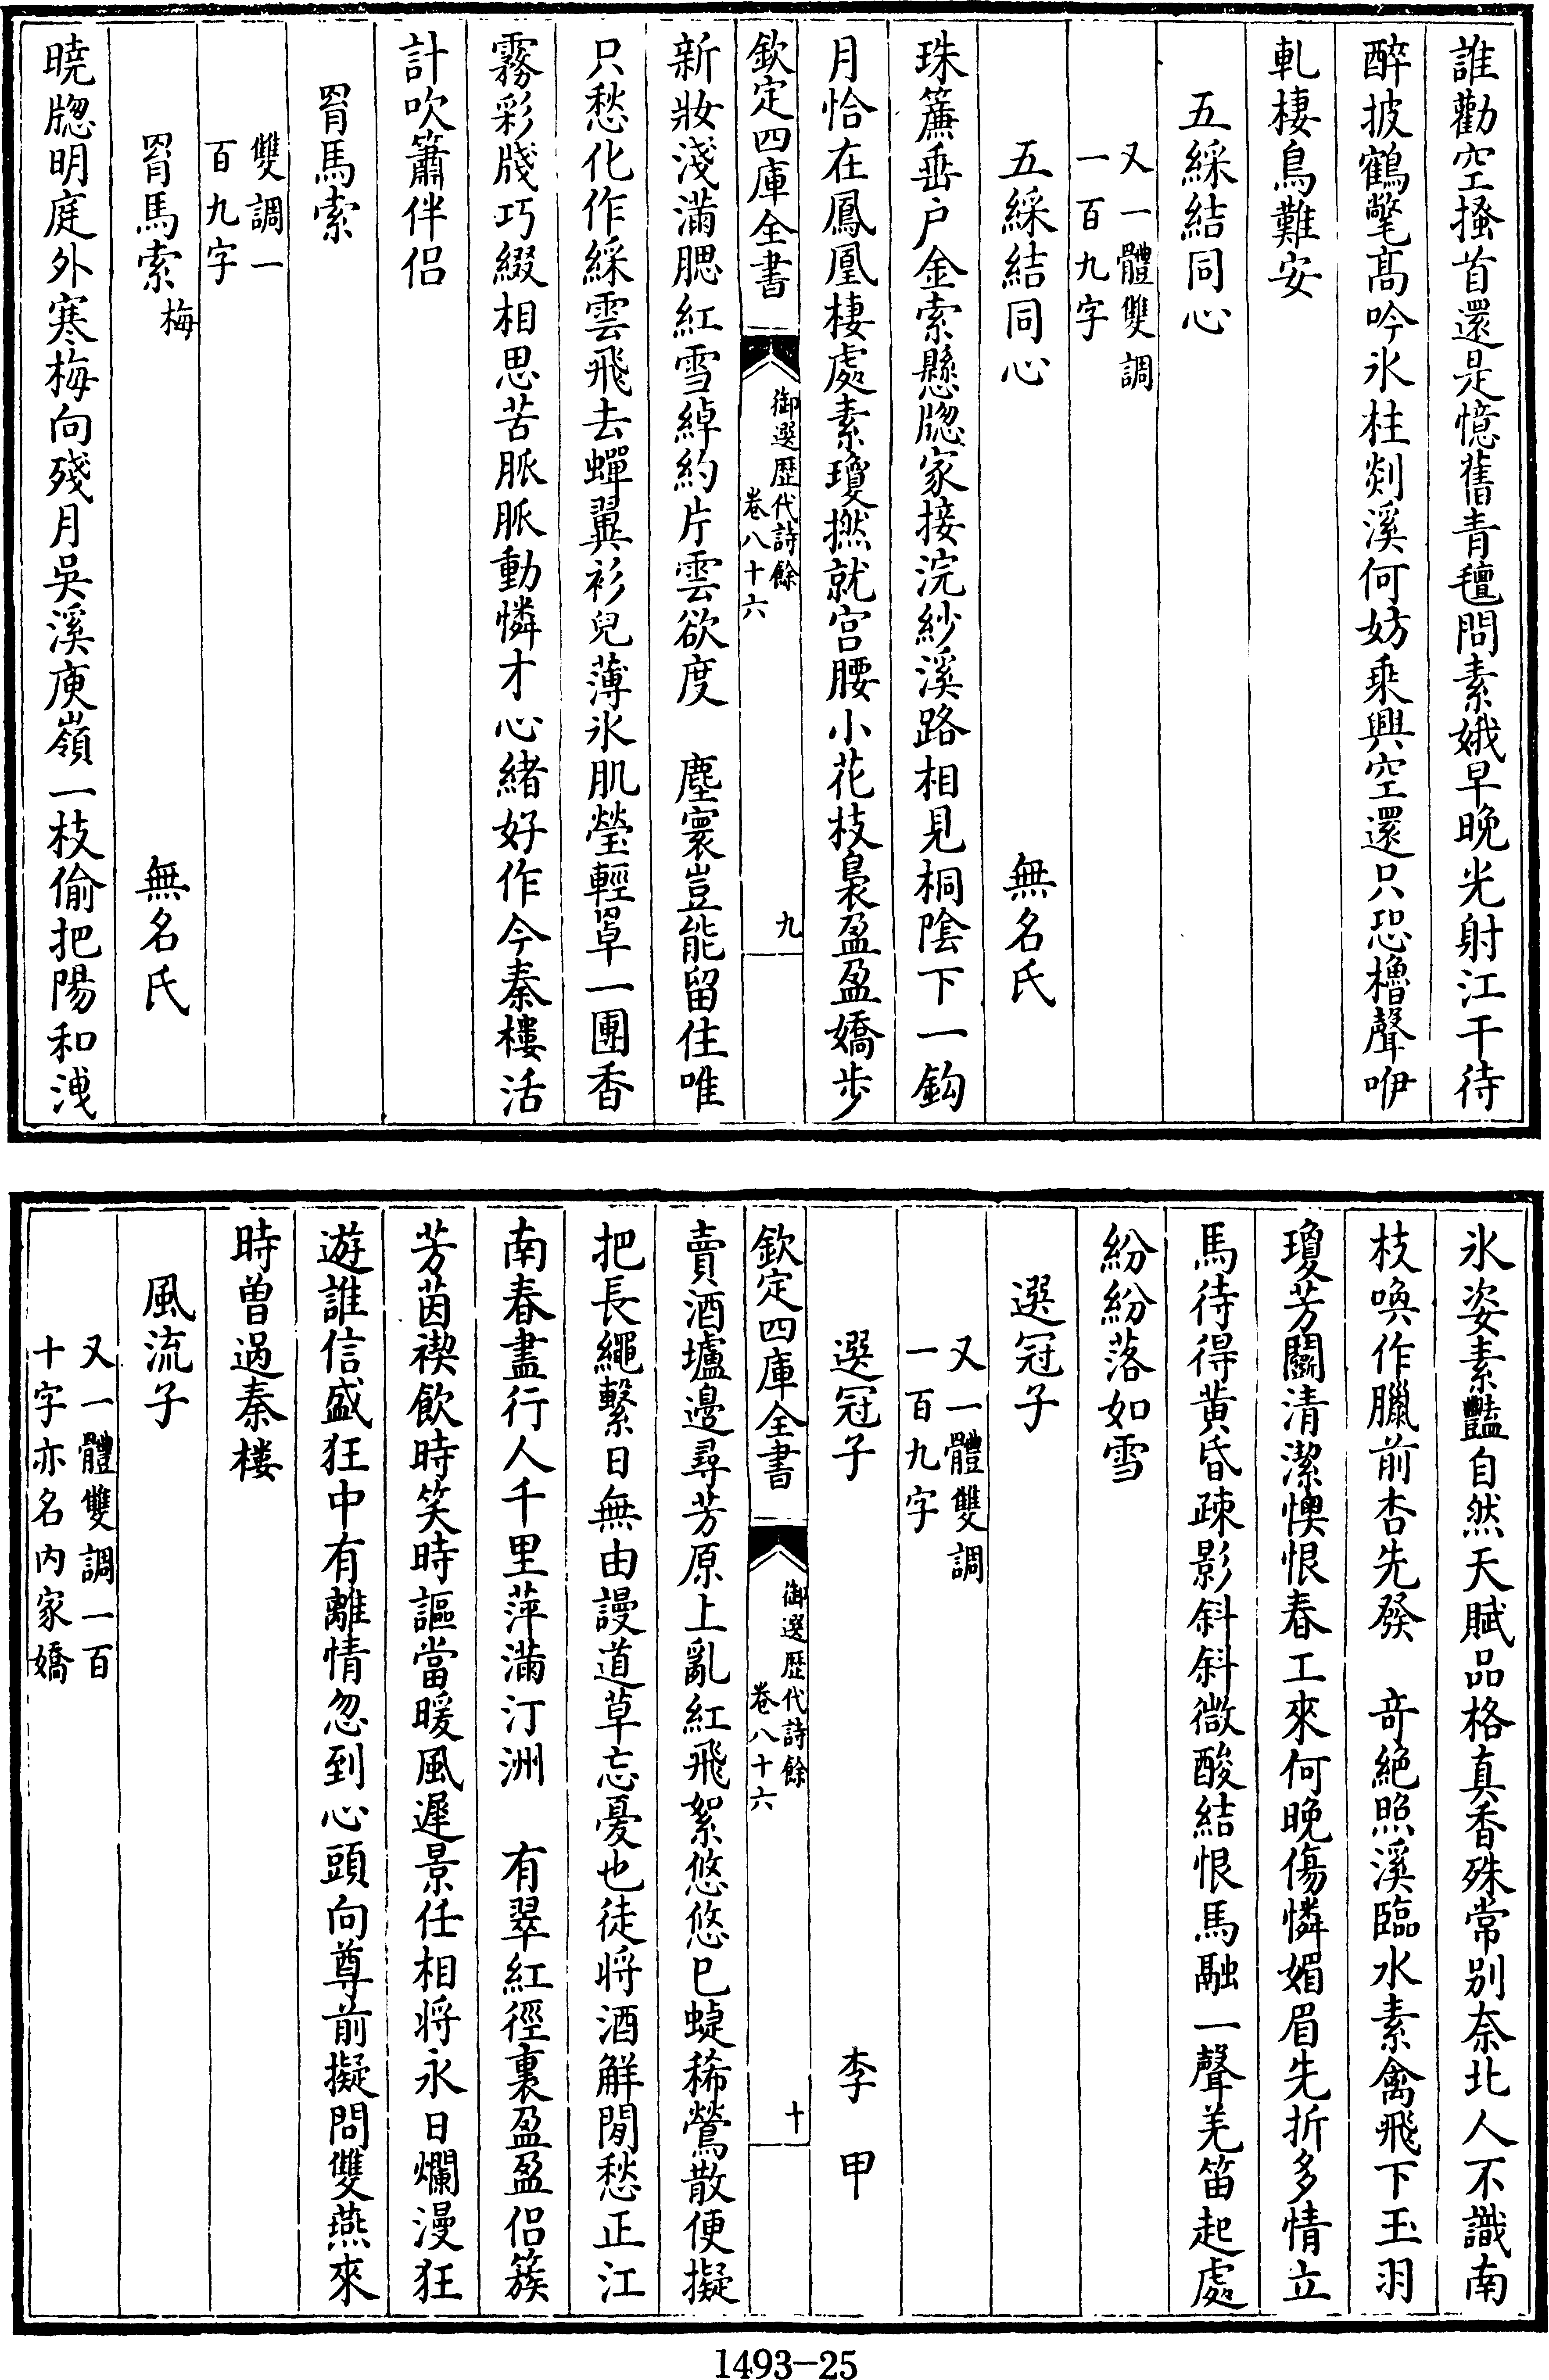 誰勸空搔首還是憶舊青氊問素娥早晚光射江干待
醉披鶴氅髙吟氷柱剡溪何妨乘興空還只恐櫓聲咿
軋棲鳥難安
五綵結同心
又一體雙調
一百九字
五綵結同心　無名氏
珠簾垂户金索懸牕家接浣紗溪路相見桐陰下一鈎
月恰在鳳凰棲處素瓊撚就宫腰小花枝裊盈盈嬌步
欽定四庫全書
御選歴代詩餘
卷八十六
九
新妝淺滿腮紅雪綽約片雲欲度　塵寰豈能留住唯
只愁化作綵雲飛去蟬翼衫兒薄氷肌瑩輕罩一團香
霧彩牋巧綴相思苦脈脈動憐才心緒好作今秦樓活
計吹簫伴侣
罥馬索
雙調一
百九字
罥馬索梅　無名氏
曉牕明庭外寒梅向殘月吳溪庾嶺一枝偷把陽和洩
氷姿素豔自然天賦品格真香殊常别奈北人不識南
枝喚作臘前杏先發　竒絶照溪臨水素禽飛下玉羽
瓊芳鬭清潔懊恨春工來何晚傷憐媚眉先折多情立
馬待得黄昏疎影斜斜微酸結恨馬融一聲羌笛起處
紛紛落如雪
選冠子
又一體雙調
一百九字
選冠子　李甲
欽定四庫全書
御選歴代詩餘
卷八十六
十
賣酒壚邊尋芳原上亂紅飛絮悠悠已蜨稀鶯散便擬
把長繩繫日無由謾道草忘憂也徒将酒解閒愁正江
南春盡行人千里蘋滿汀洲　有翠紅徑裏盈盈侣簇
芳茵禊飲時笑時謳當暖風遲景任相将永日爛漫狂
遊誰信盛狂中有離情忽到心頭向尊前擬問雙燕來
時曽過秦樓
風流子
又一體雙調一百
十字亦名内家嬌
1493-25